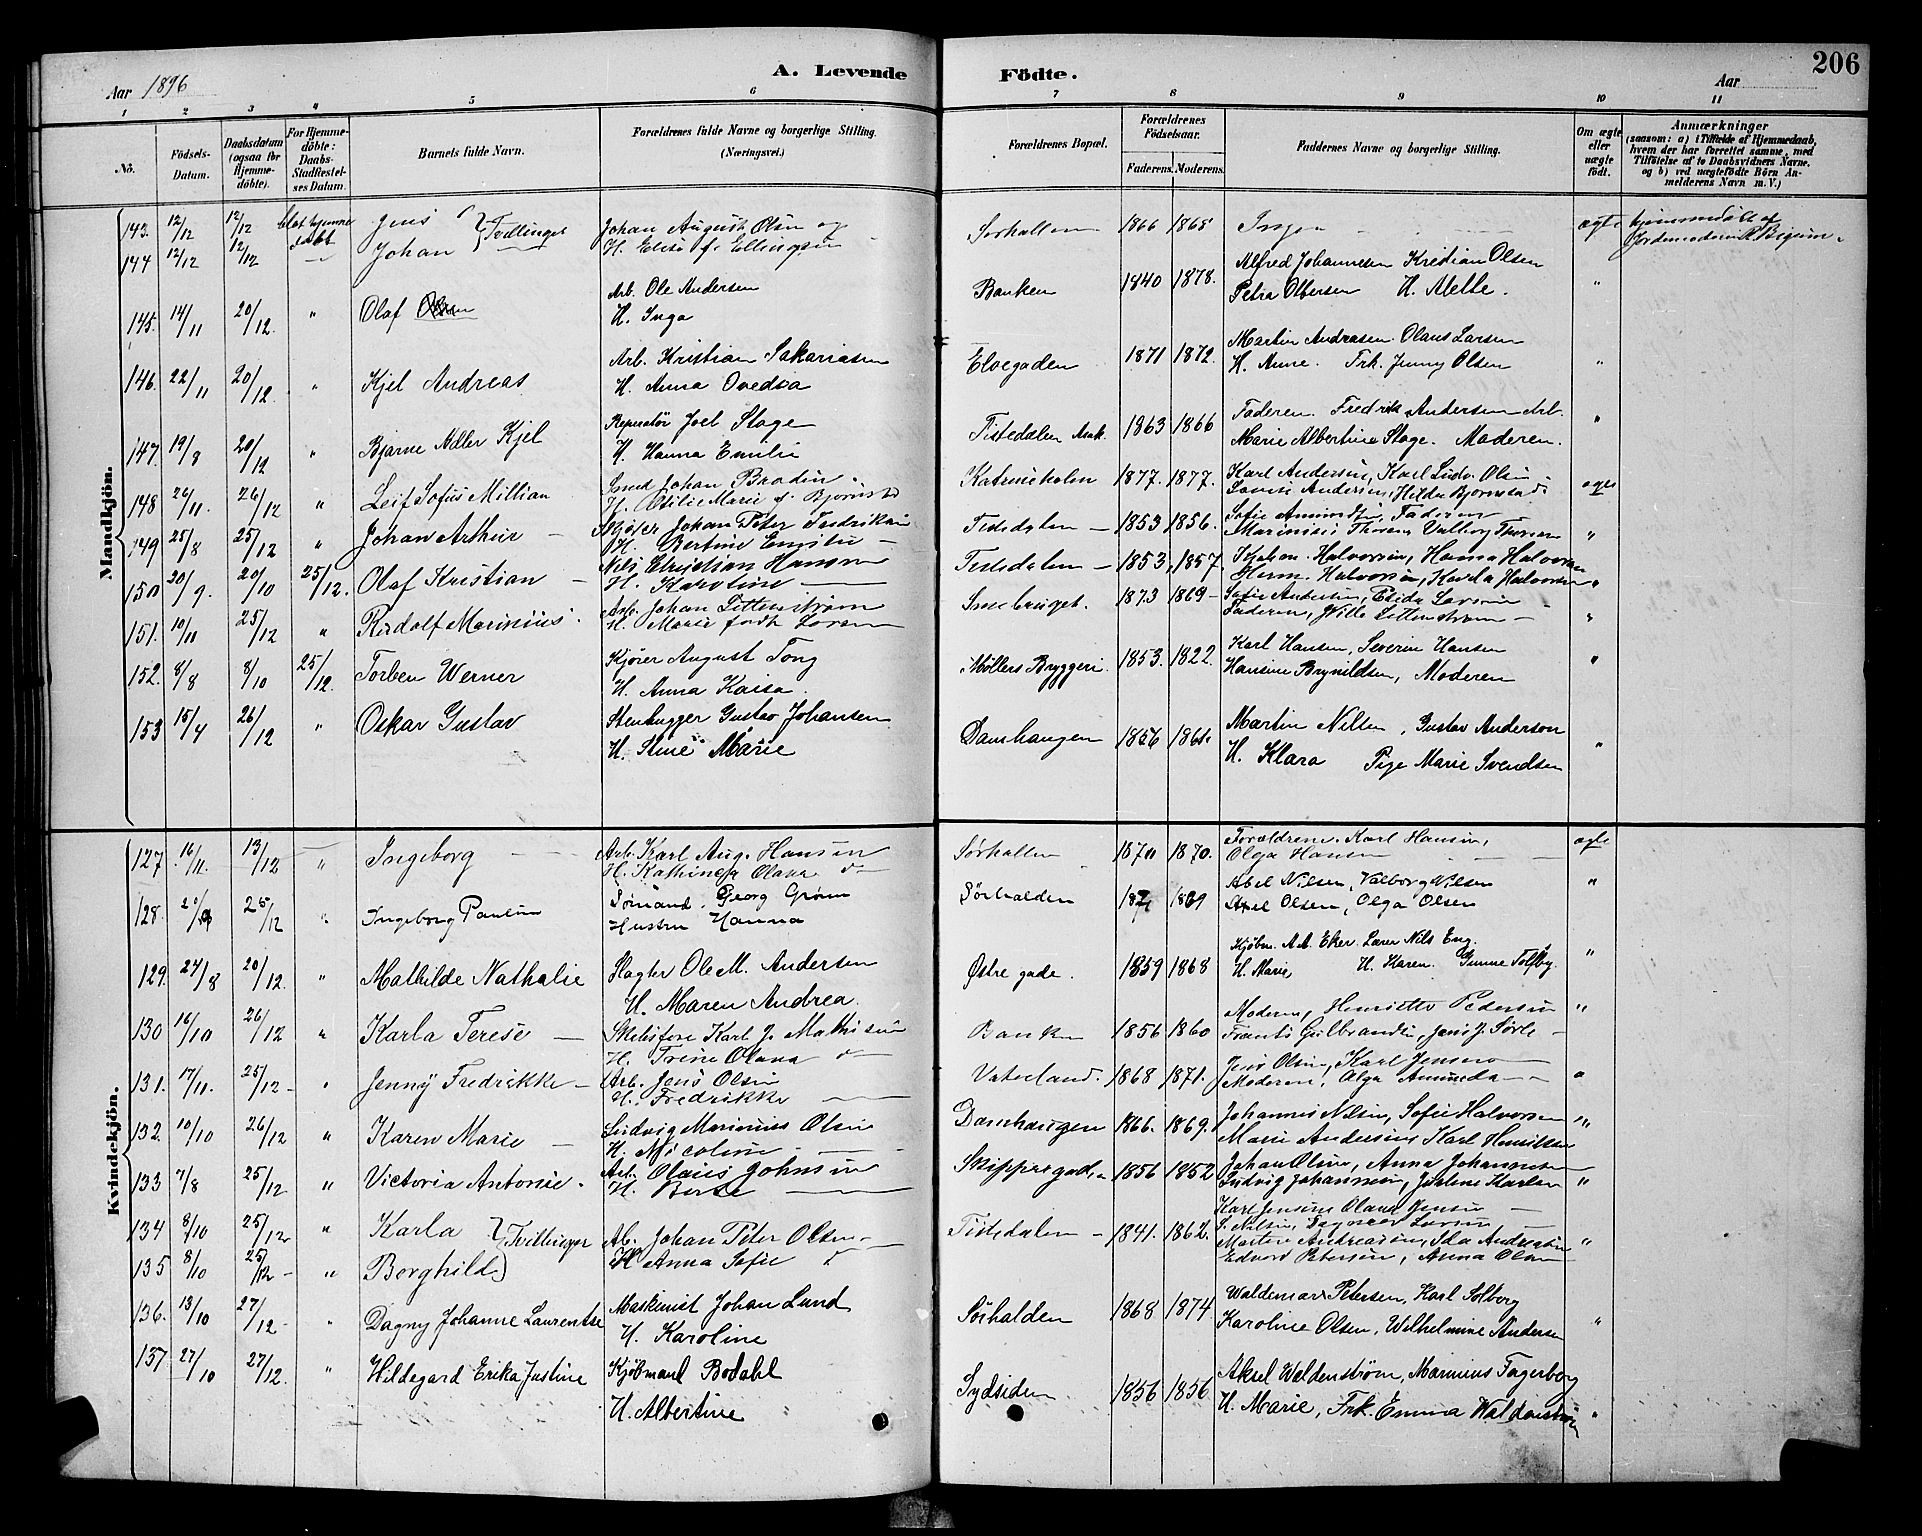 206
A. Levende Födte.
Aar 1896
Aar
1 2 3 4 5 6 7 8 9 10 11
No.
Födsels-Datum.
Daabsdatum (ogsaa for Hjemmedöbte).
For Hjemmedöbte: Daabs-Stadfæstelses Datum.
Barnets fulde Navn.
Forældrenes fulde Navne og borgerlige Stilling. (Næringsvei.)
Forældrenes Bopæl.
Forældrenes Födselsaar.
Faderens. Moderens.
Faddernes Navne og borgerlige Stilling.
Om ægte eller uægte födt.
Anmærkninger
(saasom: a) i Tilfælde af Hjemmedaab, hvem der har forrettet samme, med Tilföielse af to Daabsvidners Navne, og b) ved uægtefödte Börn Anmelderens Navn m. V.)
Mandkjön.
143. 12/12 12/12 blot hjemmedøbt Jens } Tvillinger Johan August Olsen og Sørhallen 1866 1865 Ingen ægte hjemmedøbt af
144 12/12 12/12 Johan H. Elise f. Ellingsen Jordemoderen
145. 14/11 20/12. " Olaf Arb. Ole Andersen Banken 1840 1878. Alfred Johannesen Kristian Olsen "
H. Inga Petra Olbersen H. Mette.
146. 22/11 20/12. " Kjel Andreas Arb. Kristian Sakariasen Elvegaden 1871 1872. Martin Andreasen Olaus Larsen "
H. Anna Ovedia H. Anne. Frk. Jenny Olsen
147. 19/8 20/12 " Bjarne Adler Kjel Reperatør Joel Stage Tistedalen Ask. 1863 1866 Faderen. Fredrik Andersen Arb. "
H. Hanna Emilie Marie Albertine Stage. Moderen.
148 26/11. 26/12 " Leif Sofus Millian Smed Johan Brodin Katrineholm 1877. 1877. Karl Andersen, Karl Ludv. Olsen ægte
H. Otilie Marie f. Bjørnstad Andersen, Hilda Bjørnstad
149 25/8 25/12 " Johan Arthur Johan Peter Fredriksen Tistedalen 1853 1856. Sofie Amundsen, Faderen "
H. Bertine Emilie Thoresen, Valborg Thoresen
150 20/9. 20/10 25/12. Olaf Kristian Nils Christian Hansen Tistedalen 1853, 1857. Halvorsen, Hanna Halvorsen "
H. Karoline Herm. Halvorsen, Karla Halvorsen
151. 10/11 25/12 " Rudolf Marinius Arb. Johan Littenstrøm 1873 1869 Sofie Andersen, Larsen "
H. Marie født Larsen Faderen, Littenstrøm
152. 8/8 8/10 25/12. Torben Werner Kjører August Tong Møllers Bryggeri. 1853. 1822. Karl Hansen, Severin Hansen "
H. Anna Kaisa. Hansine Brynildsen, Moderen
153 15/4 26/12 " Oskar Gustav Stenhugger Gustav Johansen Damhaugen 1856 1861. Martin Nilsen, Gustav Anderson "
H. Stine Marie H. Klara Pige Marie Svendsen
Kvindekjön.
127. 16/11. 13/12 " Ingeborg Arb. Karl Aug. Hansen Sørhallen 1870 1870. Forældrene. Karl Hansen, ægte
H. Kathinca Olava Olga Hansen
128. 25/12 " Ingeborg Pauline Sømand Georg Grøm Sørhalden 1869 Abel Nilsen, Valborg Nilsen "
Hustru Hanna Axel Olsen, Olga Olsen
129. 24/8 20/12. " Mathilde Nathalie Slagter Ole M. Andersen Østre gade. 1859 1868 Kjøbm. A. A. Eker. Lærer Nils Eng. "
H. Maren Andrea. H. Marie, H. Karen. Gunne Tolsby.
130 16/10 26/12 " Karla Terese Karl J. Mathisen Banken 1856 1860 Moderen, Henriette Pedersen "
H. Trine Olava Frants Gulbrandsen, Jens J. Sørli
131. 17/11. 25/12 " Jenny Fredrikke Arb. Jens Olsen Vaterland. 1868 1871. Jens Olsen, Karl Jensen "
H. Fredrikke Moderen, Olga Amunda
132. 10/10 26/12 " Karen Marie Ludvig Marinius Olsen Damhaugen 1866. 1869. Johannes Nilsen, Sofie Halvorsen "
H. Nicoline Marie Andersen, Karl Henriksen
133 7/8 25/12 " Victoria Antonie. Arb. Olaus Johnsen Skippergaden 1856 1852 Johan Olsen, Anna Johannesen "
H. Berte Ludvig Johannesen, Karlsen
134 8/10 25/12 " Karla } Tvillinger Ab. Johan Peter Olsen Tistedalen 1841. 1862. Karl Jensen Olava Jensen "
135 8/10 25/12 " Borghild H Anna Sofie S. Nilsen, Dagmar Larsen
Martin Andreassen, Ida Andreassen
Edvard Petersen, Anna Olsen
136. 13/10 27/12 " Dagny Johanne Laurentse Maskinist Johan Lund Sørhalden 1868 1874 Waldemar Petersen, Karl Solberg "
H. Karoline Karoline Olsen, Wilhelmine Andersen
137 27/10 27/12. " Hildegard Erika Justine Kjøbmand Bodahl Sydsiden 1856 1856 Aksel Waldenstrøm, Marinius Fagerborg "
H. Albertine H. Marie, Frk. Emma Waldenstrøm